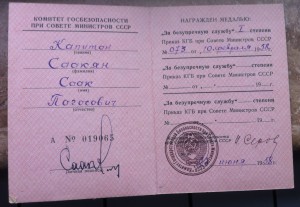 КОМИТЕТ ГОСБЕЗОПАСНОСТИ
ПРИ СОВЕТЕ МИНИСТРОВ СССР
Капитан
Саакян
(фамилия)
Соак
(имя)
Погосович
(отчество)
А № 019065
НАГРАЖДЕН МЕДАЛЬЮ:
„За безупречную службу" I степени
Приказ КГБ при Совете Министров СССР
№ 078 от 1958 г.
„За безупречную службу" степени
Приказ КГБ при Совете Министров СССР
№ от 19 г.
„За безупречную службу" степени
Приказ КГБ при Совете Министров СССР
№ от 19 г.
И Серов
июня 1958 г.